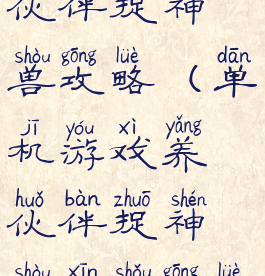 伙伴捉神
shòu gōng lüè dān
兽攻略（单
jī yóu xì yǎng
机游戏养
huǒ bàn zhuō shén
伙伴捉神
shòu xīn shǒu gōng lüè